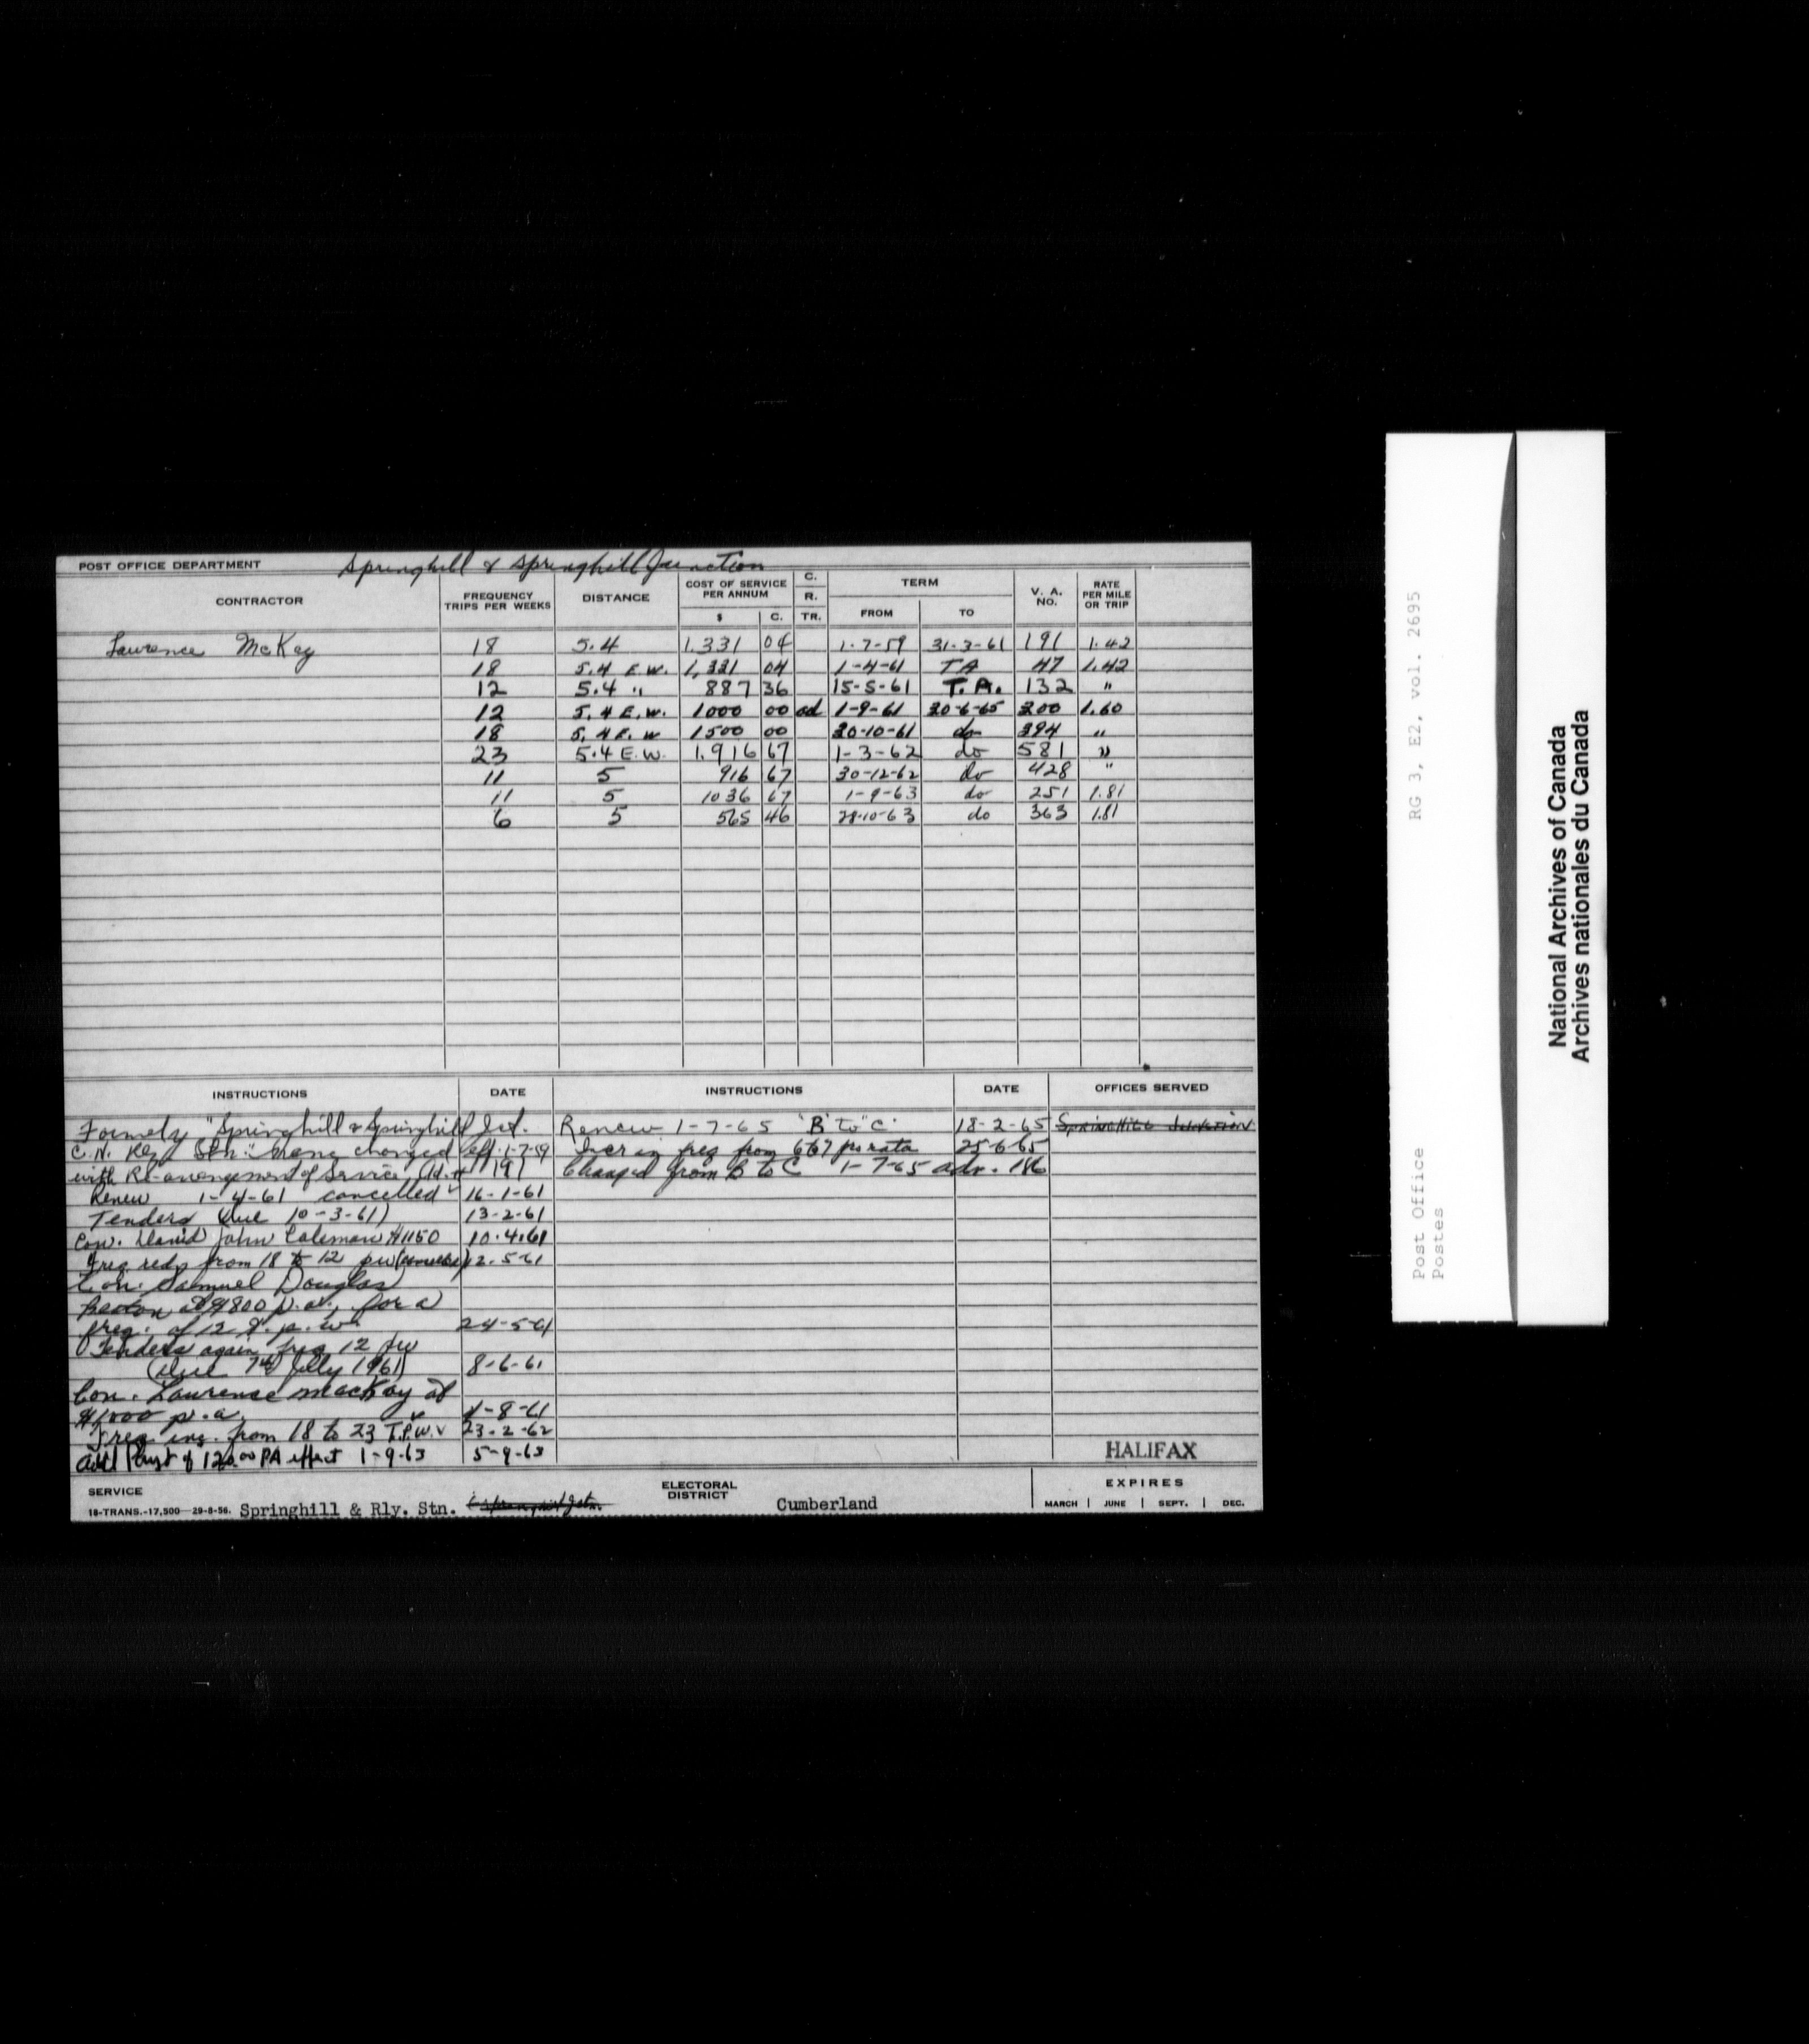 POST OFFICE DEPARTMENT Springhill & Springhill Junction
CONTRACTOR FREQUENCY TRIPS PER WEEKS DISTANCE COST OF SERVICE PER ANNUM $ C. C. R. TR. TERM FROM TO V. A. NO. RATE PER MILE OR TRIP
Lawrence McKay 18 5.4 1,331 04 1-7-59 31-3-61 191 1.42
18 5.4 E.W. 1,331 04 1-4-61 TA 47 1.42
12 5.4 " 887 36 15-5-61 T.A. 132 "
12 5.4 E.W. 1000 00 od 1-9-61 30-6-65 200 1.60
18 5.4 E.W 1500 00 30-10-61 do 394 "
23 5.4 E.W. 1,916 67 1-3-62 do 581 "
11 5 916 67 30-12-62 do 428 "
11 5 1036 67 1-9-63 do 251 1.81
6 5 565 46 28-10-63 do 363 1.81
INSTRUCTIONS DATE INSTRUCTIONS DATE OFFICES SERVED
Formely "Springhill & Springhill Jct. Renew 1-7-65 "B" to "C" 18-2-65 Springhill Junction
C.N. Rly Stn." name changed eff. 1-7-59 Incr in freq from 6 to 7 pro rata 25-6-65
with Re-arrangement of Service 191 Changed from B to C 1-7-65 adv. 186
Renew 1-4-61 cancelled 16-1-61
Tenders (due 10-3-61) 13-2-61
Con. David John Coleman $1150 10-4-61
Freq red. from 18 to 12 pw (cancelled) 12-5-61
Con. Samuel Douglas
at $800 p.a., for a
freq. of 12 t. p. w. 24-5-61
Tenders again freq 12 pw
(due 7th July 1961) 8-6-61
Con. Lawrence MacKay at
$1000 p.a. 4-8-61
Freq inc. from 18 to 23 T.P.W. 23-2-62
Add Payt of 120.00 PA effect 1-9-63 5-9-63
HALIFAX
SERVICE ELECTORAL DISTRICT EXPIRES
18-TRANS.-17,500-29-8-56. Springhill & Rly. Stn. & Springhill Jctn. Cumberland MARCH | JUNE | SEPT. | DEC.
Post Office RG 3, E2, vol. 2695
Postes
National Archives of Canada
Archives nationales du Canada